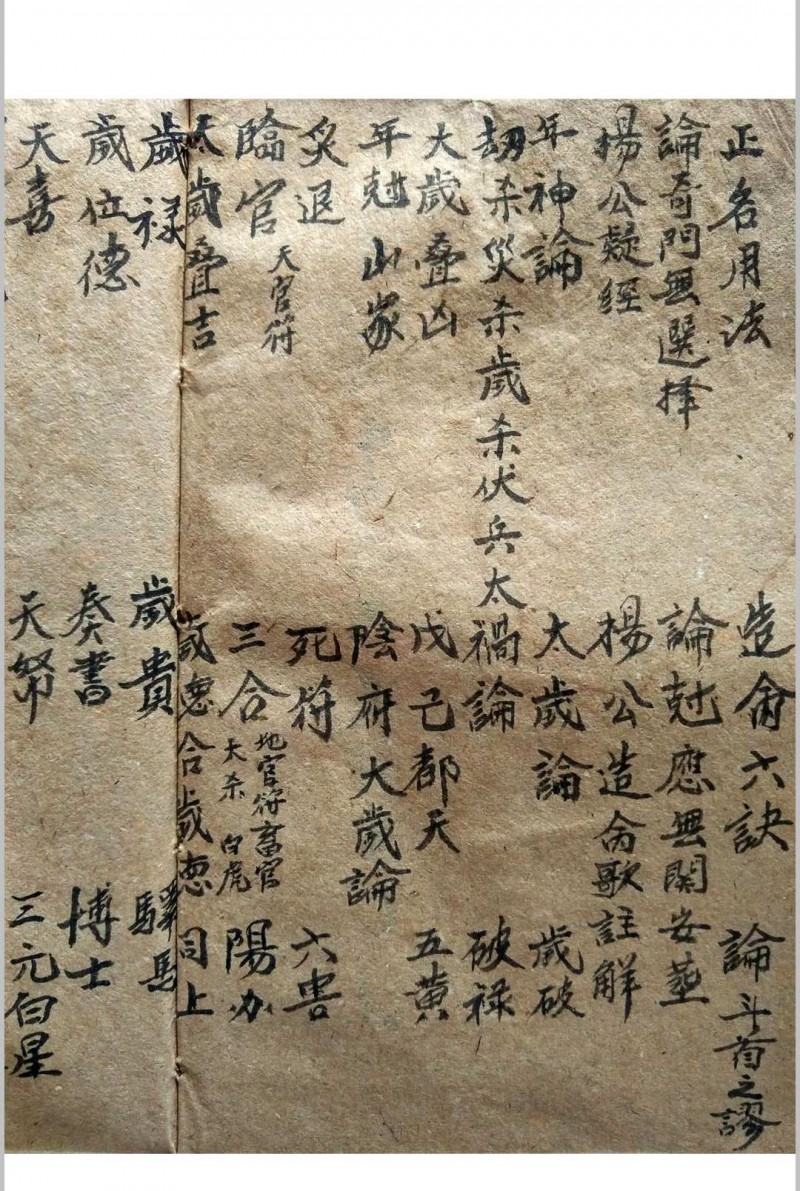 正名用法 造命六訣 論斗首之謬
論奇門無選择 論尅應無関安塟
楊公疑經 楊公造命歌註解
年神論 太歲論 歲破
劫杀災杀歲杀伏兵太禍論 破禄
大歲叠凶 戊己都天 五黄
年尅山家 陰府大歲論
炙退 死符 六害
臨官 天官符 三合 地官符畜官 大杀 白虎 陽刃
太歲叠吉 歲悳合歲悳 同上
歲禄 歲貴 驛馬
歲位德 奏書 博士
天喜 天帑 三元白星